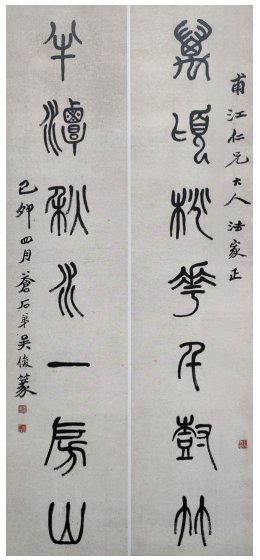 甫江仁兄大人法家正
萬頃桃花千尌竹
半潭秋水一房山
己卯四月蒼石弟吳俊篆